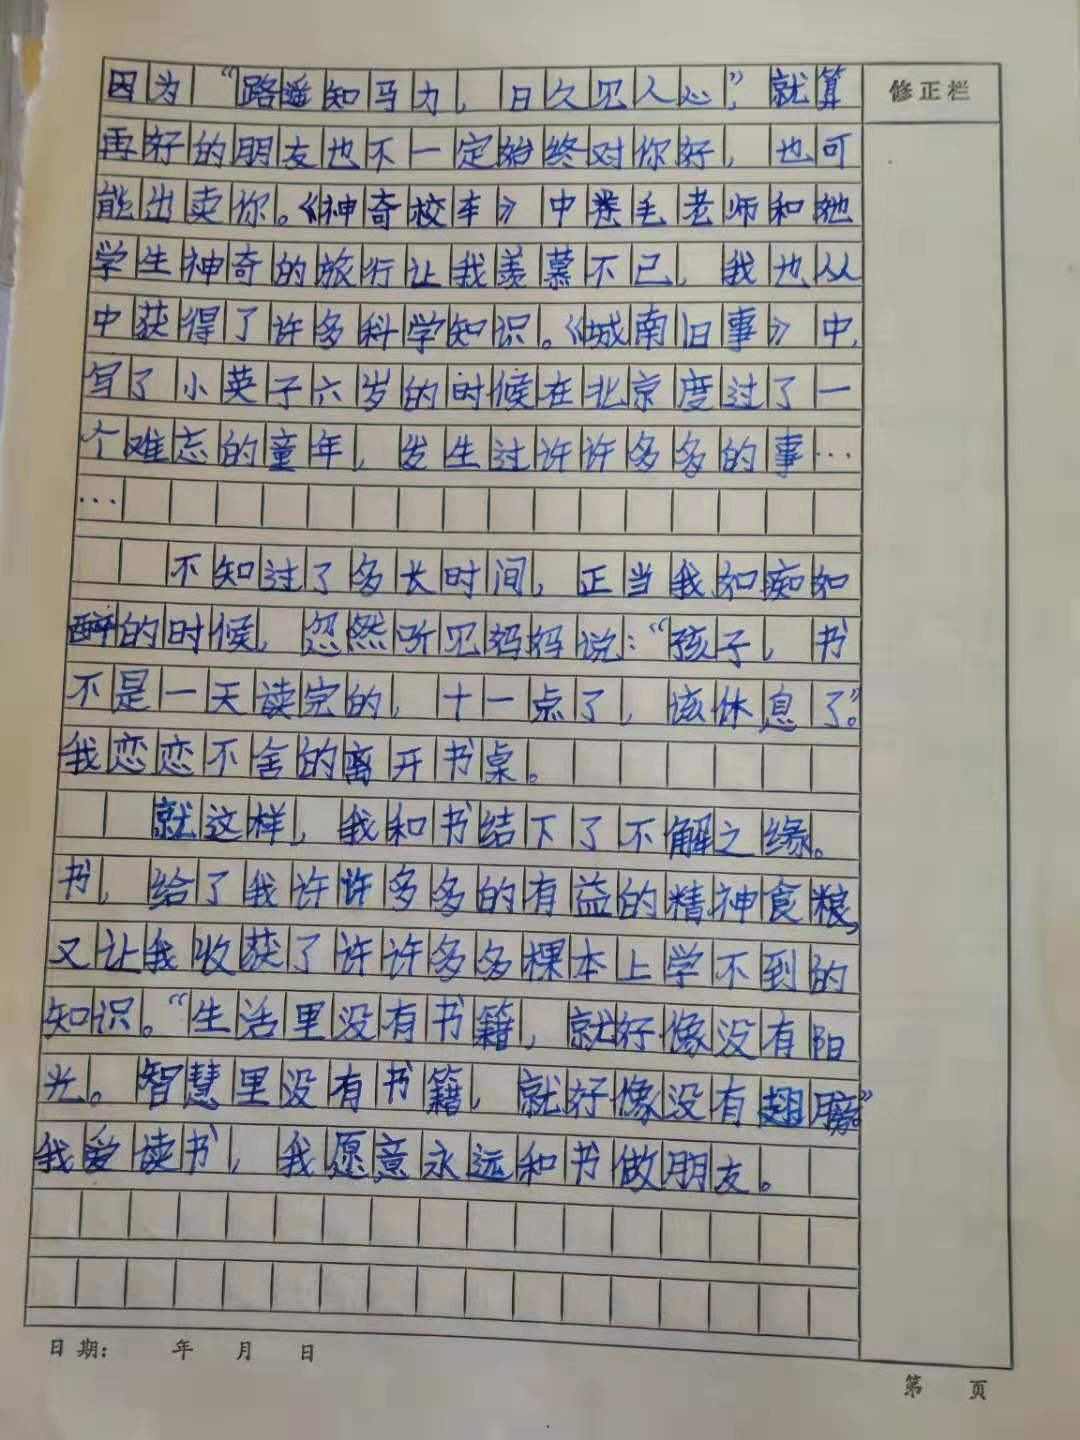 修正栏
因为“路遥知马力，日久见人心”，就算
再好的朋友也不一定始终对你好，也可
能出卖你。《神奇校车》中卷毛老师和她
学生神奇的旅行让我羡慕不已，我也从
中获得了许多科学知识。《城南旧事》中，
写了小英子六岁的时候在北京度过了一
个难忘的童年，发生过许许多多的事…
…
不知过了多长时间，正当我如痴如
醉的时候，忽然听见妈妈说：“孩子，书
不是一天读完的，十一点了，该休息了。”
我恋恋不舍的离开书桌。
就这样，我和书结下了不解之缘。
书，给了我许许多多的有益的精神食粮，
又让我收获了许许多多棵本上学不到的
知识。“生活里没有书籍，就好像没有阳
光。智慧里没有书籍，就好像没有翅膀。”
我爱读书，我愿意永远和书做朋友。
日期： 年 月 日
第 页